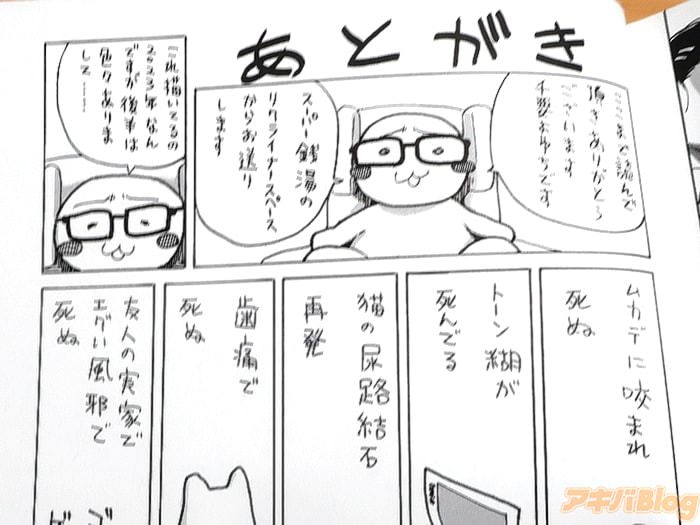 あとがき
ここまで読んで
頂きありがとう
ございます
です
スパー銭湯の
リクライナースペース
からお送り
します
これ描いてるの
2023年なん
ですが後半は
色々ありま
して……
ムカデに咬まれ
死ぬ
トーン糊が
死んでる
猫の尿路結石
再発
歯痛で
死ぬ
友人の実家で
エグい風邪で
死ぬ
アキバBlog